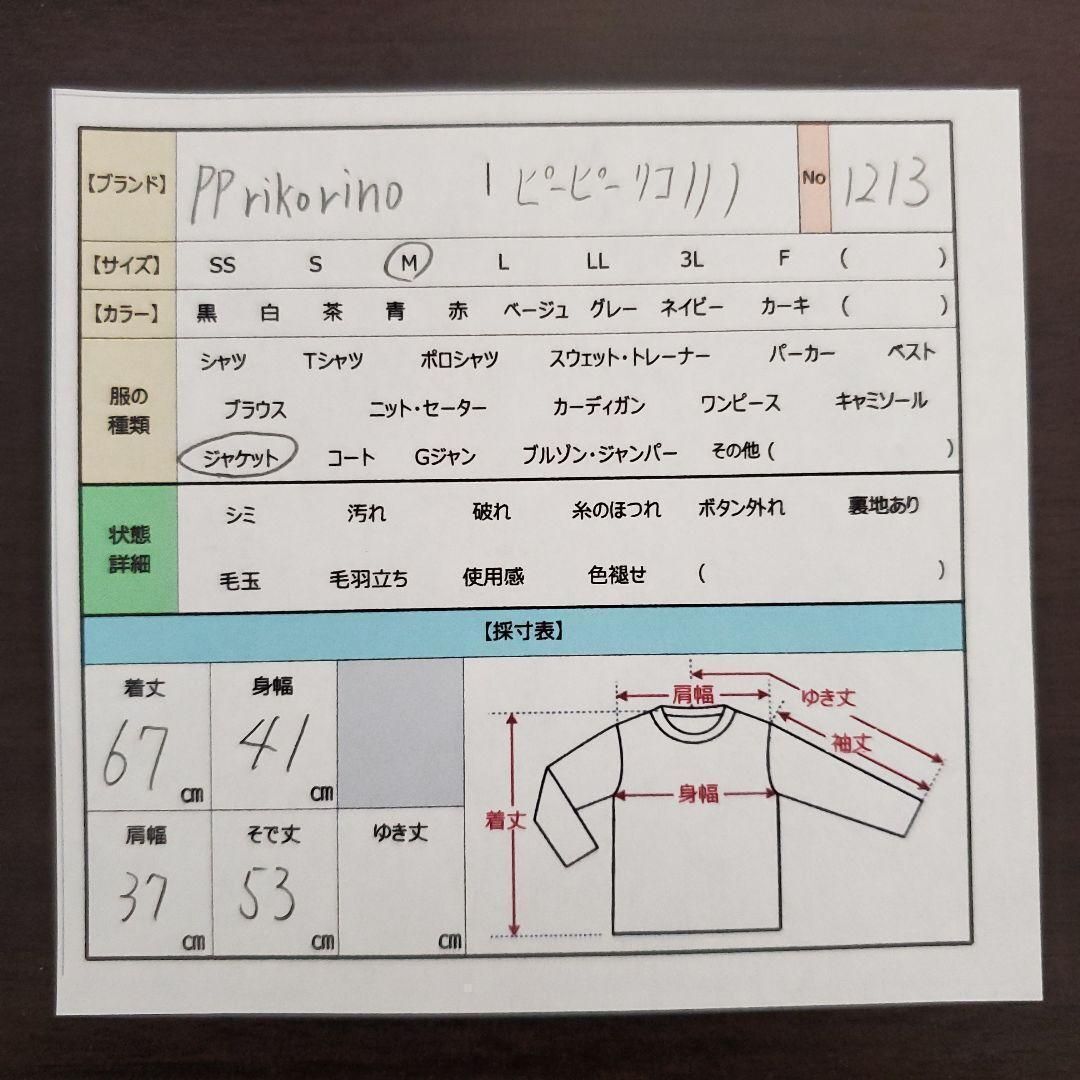 【ブランド】 PP rikorino | ピーピーリコリノ No 1213
【サイズ】 SS S M L LL 3L F ( )
【カラー】 黒 白 茶 青 赤 ベージュ グレー ネイビー カーキ ( )
服の種類
シャツ Tシャツ ポロシャツ スウェット・トレーナー パーカー ベスト
ブラウス ニット・セーター カーディガン ワンピース キャミソール
ジャケット コート Gジャン ブルゾン・ジャンパー その他 ( )
状態詳細
シミ 汚れ 破れ 糸のほつれ ボタン外れ 裏地あり
毛玉 毛羽立ち 使用感 色褪せ ( )
【採寸表】
着丈 身幅
67 cm 41 cm
肩幅 そで丈 ゆき丈
37 cm 53 cm cm
肩幅
ゆき丈
袖丈
身幅
着丈